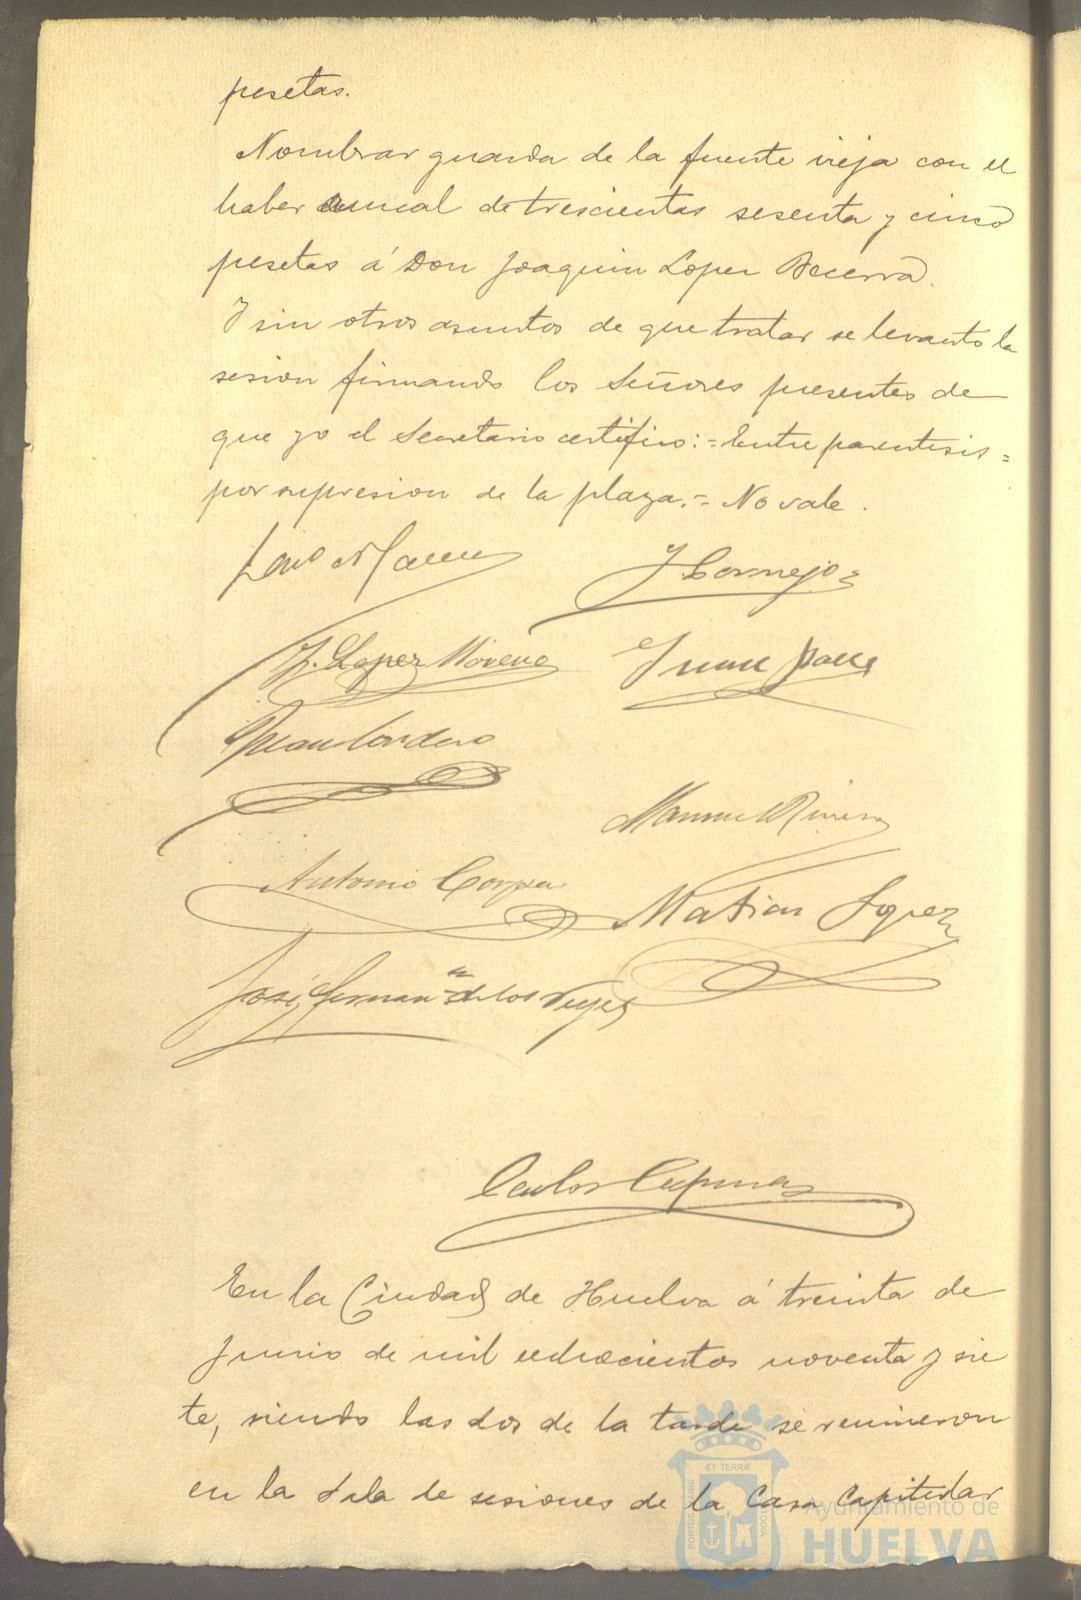 pesetas.
Nombrar guarda de la fuente vieja con el
haber anual de trescientas sesenta y cinco
pesetas á Don Joaquin Lopez Becerra.
Y sin otros asuntos de que tratar se levanto la
sesion firmando los Señores presentes de
que yo el Secretario certifico:=Entre parentesis=
por supresion de la plaza.=No vale.
J Cornejo
J. Lopez Moreno
Juan
Juan Cordero
Manuel Rivera
Antonio
Matias Lopez
José Fernan de los Reyes
Carlos
En la Ciudad de Huelva á treinta de
Junio de mil ochocientos noventa y sie
te, siendo las dos de la tarde se reunieron
en la Sala de sesiones de la Casa Capitular
PORTUS MARIS ET TERRÆ CUSTODIA
Ayuntamiento de
HUELVA